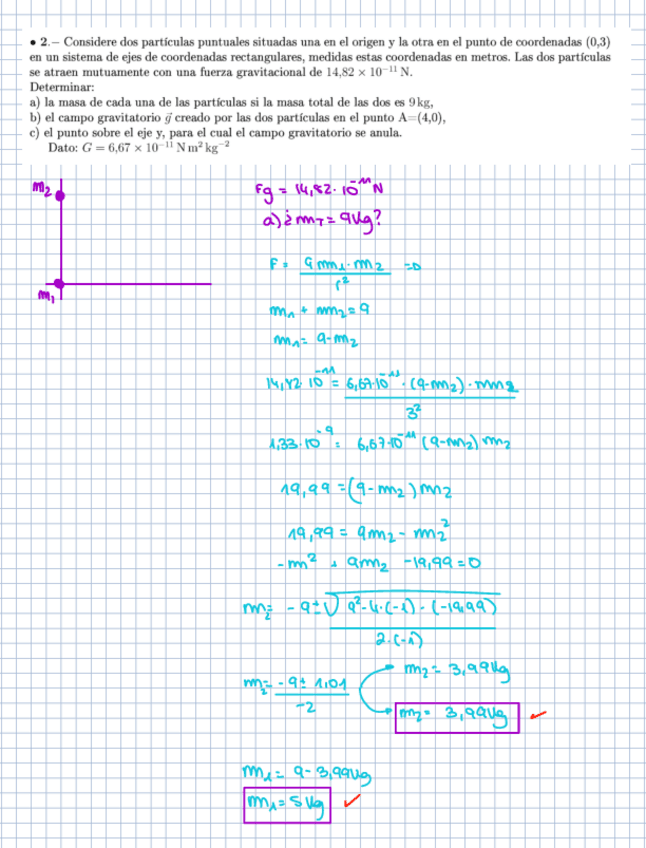 • 2.— Considere dos partículas puntuales situadas una en el origen y la otra en el punto de coordenadas (0,3)
en un sistema de ejes de coordenadas rectangulares, medidas estas coordenadas en metros. Las dos partículas
se atraen mutuamente con una fuerza gravitacional de 14,82 × 10⁻¹¹ N.
Determinar:
a) la masa de cada una de las partículas si la masa total de las dos es 9 kg,
b) el campo gravitatorio g⃗ creado por las dos partículas en el punto A=(4,0),
c) el punto sobre el eje y, para el cual el campo gravitatorio se anula.
Dato: G = 6,67 × 10⁻¹¹ N m² kg⁻²
m₂
m₁
Fg = 14,82·10⁻¹¹ N
a) ¿ m_T = 9kg?
F = G m₁·m₂ / r² =>
m₁ + m₂ = 9
m₁ = 9-m₂
14,82·10⁻¹¹ = 6,67·10⁻¹¹·(9-m₂)·m₂ / 3²
1,33·10⁻⁹ = 6,67·10⁻¹¹ (9-m₂) m₂
19,99 = (9-m₂) m₂
19,99 = 9m₂ - m₂²
-m² + 9m₂ - 19,99 = 0
m₂ = -9 ± √(9²-4·(-1)·(-19,99)) / 2·(-1)
m₂ = -9 ± 1,01 / -2
m₂ = 3,99kg
m₂ = 3,99kg ✓
m₁ = 9-3,99kg
m₁ = 5kg ✓